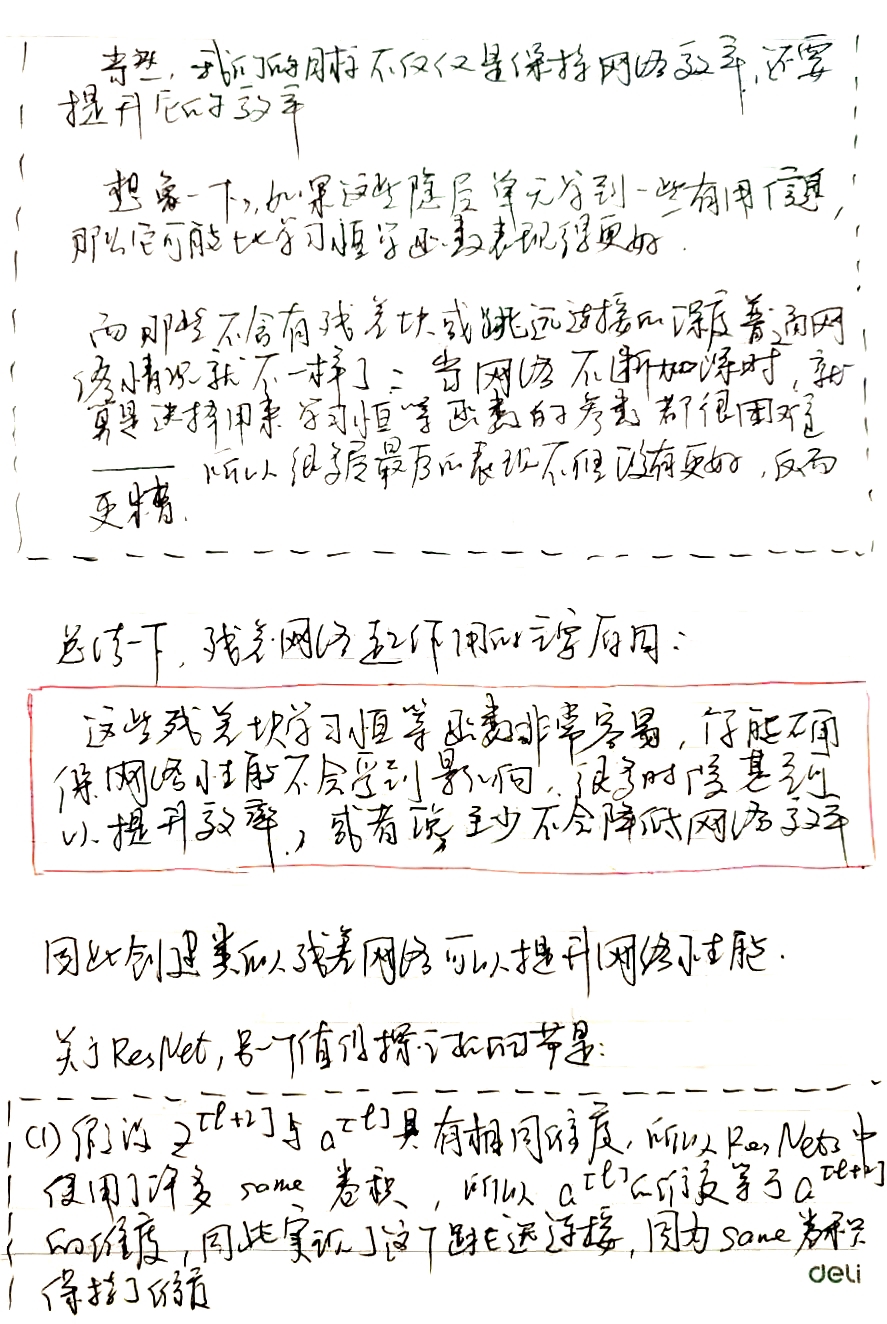 当然，我们的目标不仅仅是保持网络效率，还要
提升它的效率
想象一下，如果这些隐层单元学到一些有用信息，
那么它可能比学习恒等函数表现得更好．
而那些不含有残差块或跳远连接的深度普通网
络情况就不一样了：当网络不断加深时，就
算是选择用来学习恒等函数的参数都很困难
所以很多层最后的表现不但没有更好，反而
更糟．
总结一下，残差网络起作用的主要原因：
这些残差块学习恒等函数非常容易，你能确
保网络性能不会受到影响，很多时候甚至可
以提升效率，或者说至少不会降低网络效率
因此创建类似残差网络可以提升网络性能．
关于ResNet，另一个值得探讨的细节是：
(1) 假设 z[l+2] 与 a[l] 具有相同维度，所以ResNets中
使用了许多 same 卷积，所以 a[l] 的维度等于 a[l+2]
的维度，因此实现了这个跳远连接，因为 same 卷积
保持了维度
deli